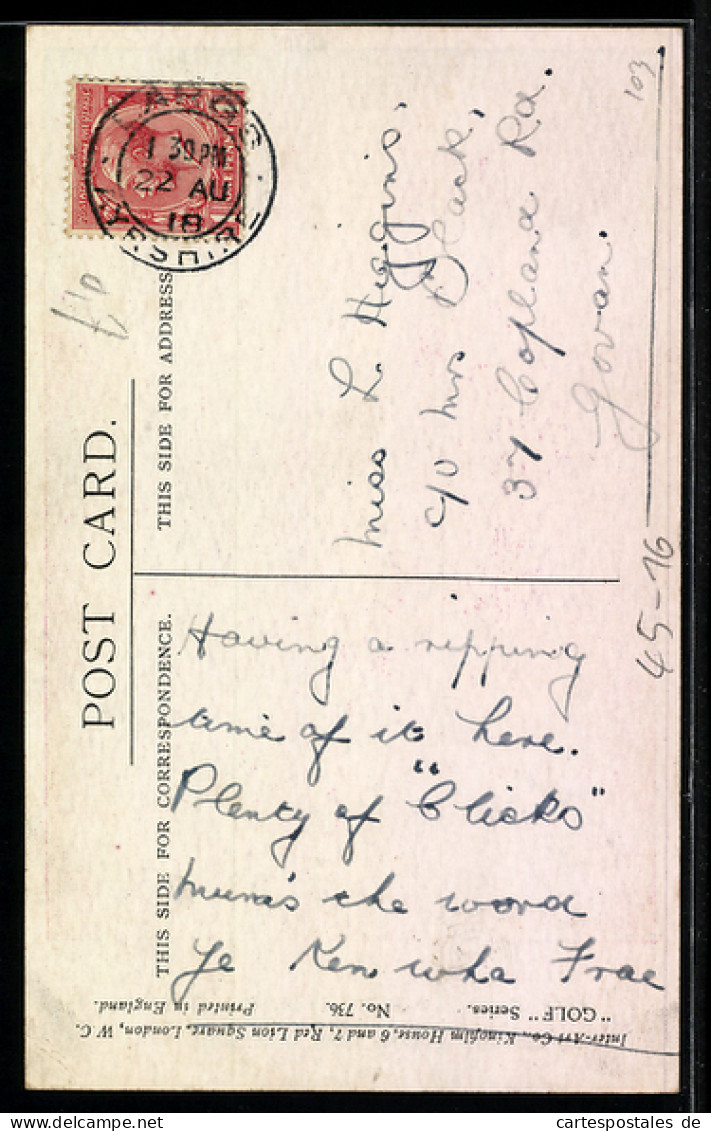 POST CARD.
THIS SIDE FOR CORRESPONDENCE.
THIS SIDE FOR ADDRESS
LARGS
1 30 PM
22 AU
18
AYRSHIRE
Having a ripping
time of it here.
Plenty of "Clicks"
mum's the word
Ye Ken wha Frae
Miss L. Higgins,
c/o Mrs Black,
37 Copland Rd.
Govan.
103
45-16
"GOLF" Series. No. 736. Printed in England.
Inter-Art Co., Kinofilm House, 6 and 7, Red Lion Square, London, W.C.
cartespostales de